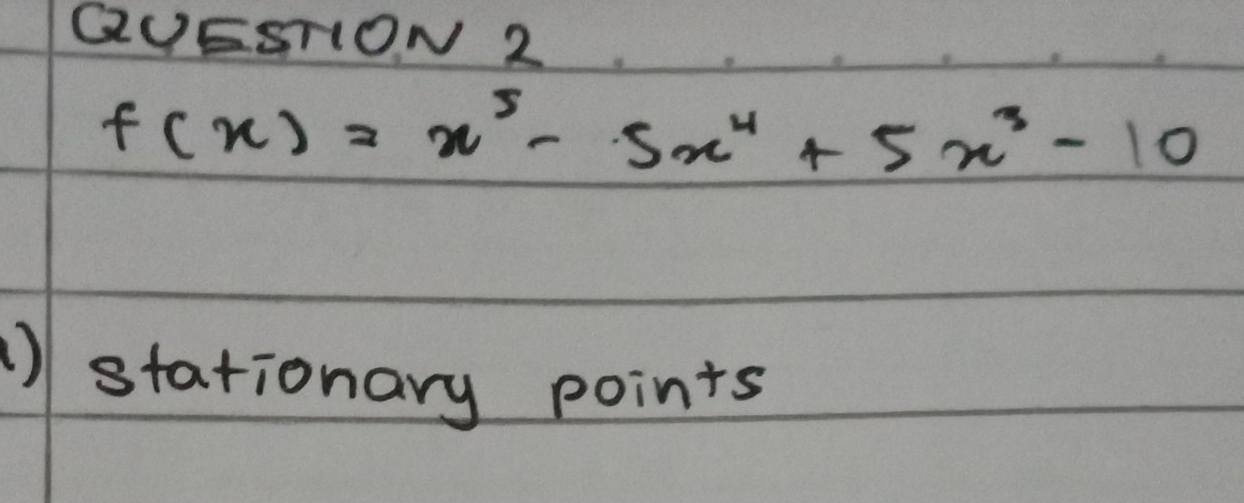 QUESTION 2
f(x) = x⁵ - 5x⁴ + 5x³ - 10
stationary points